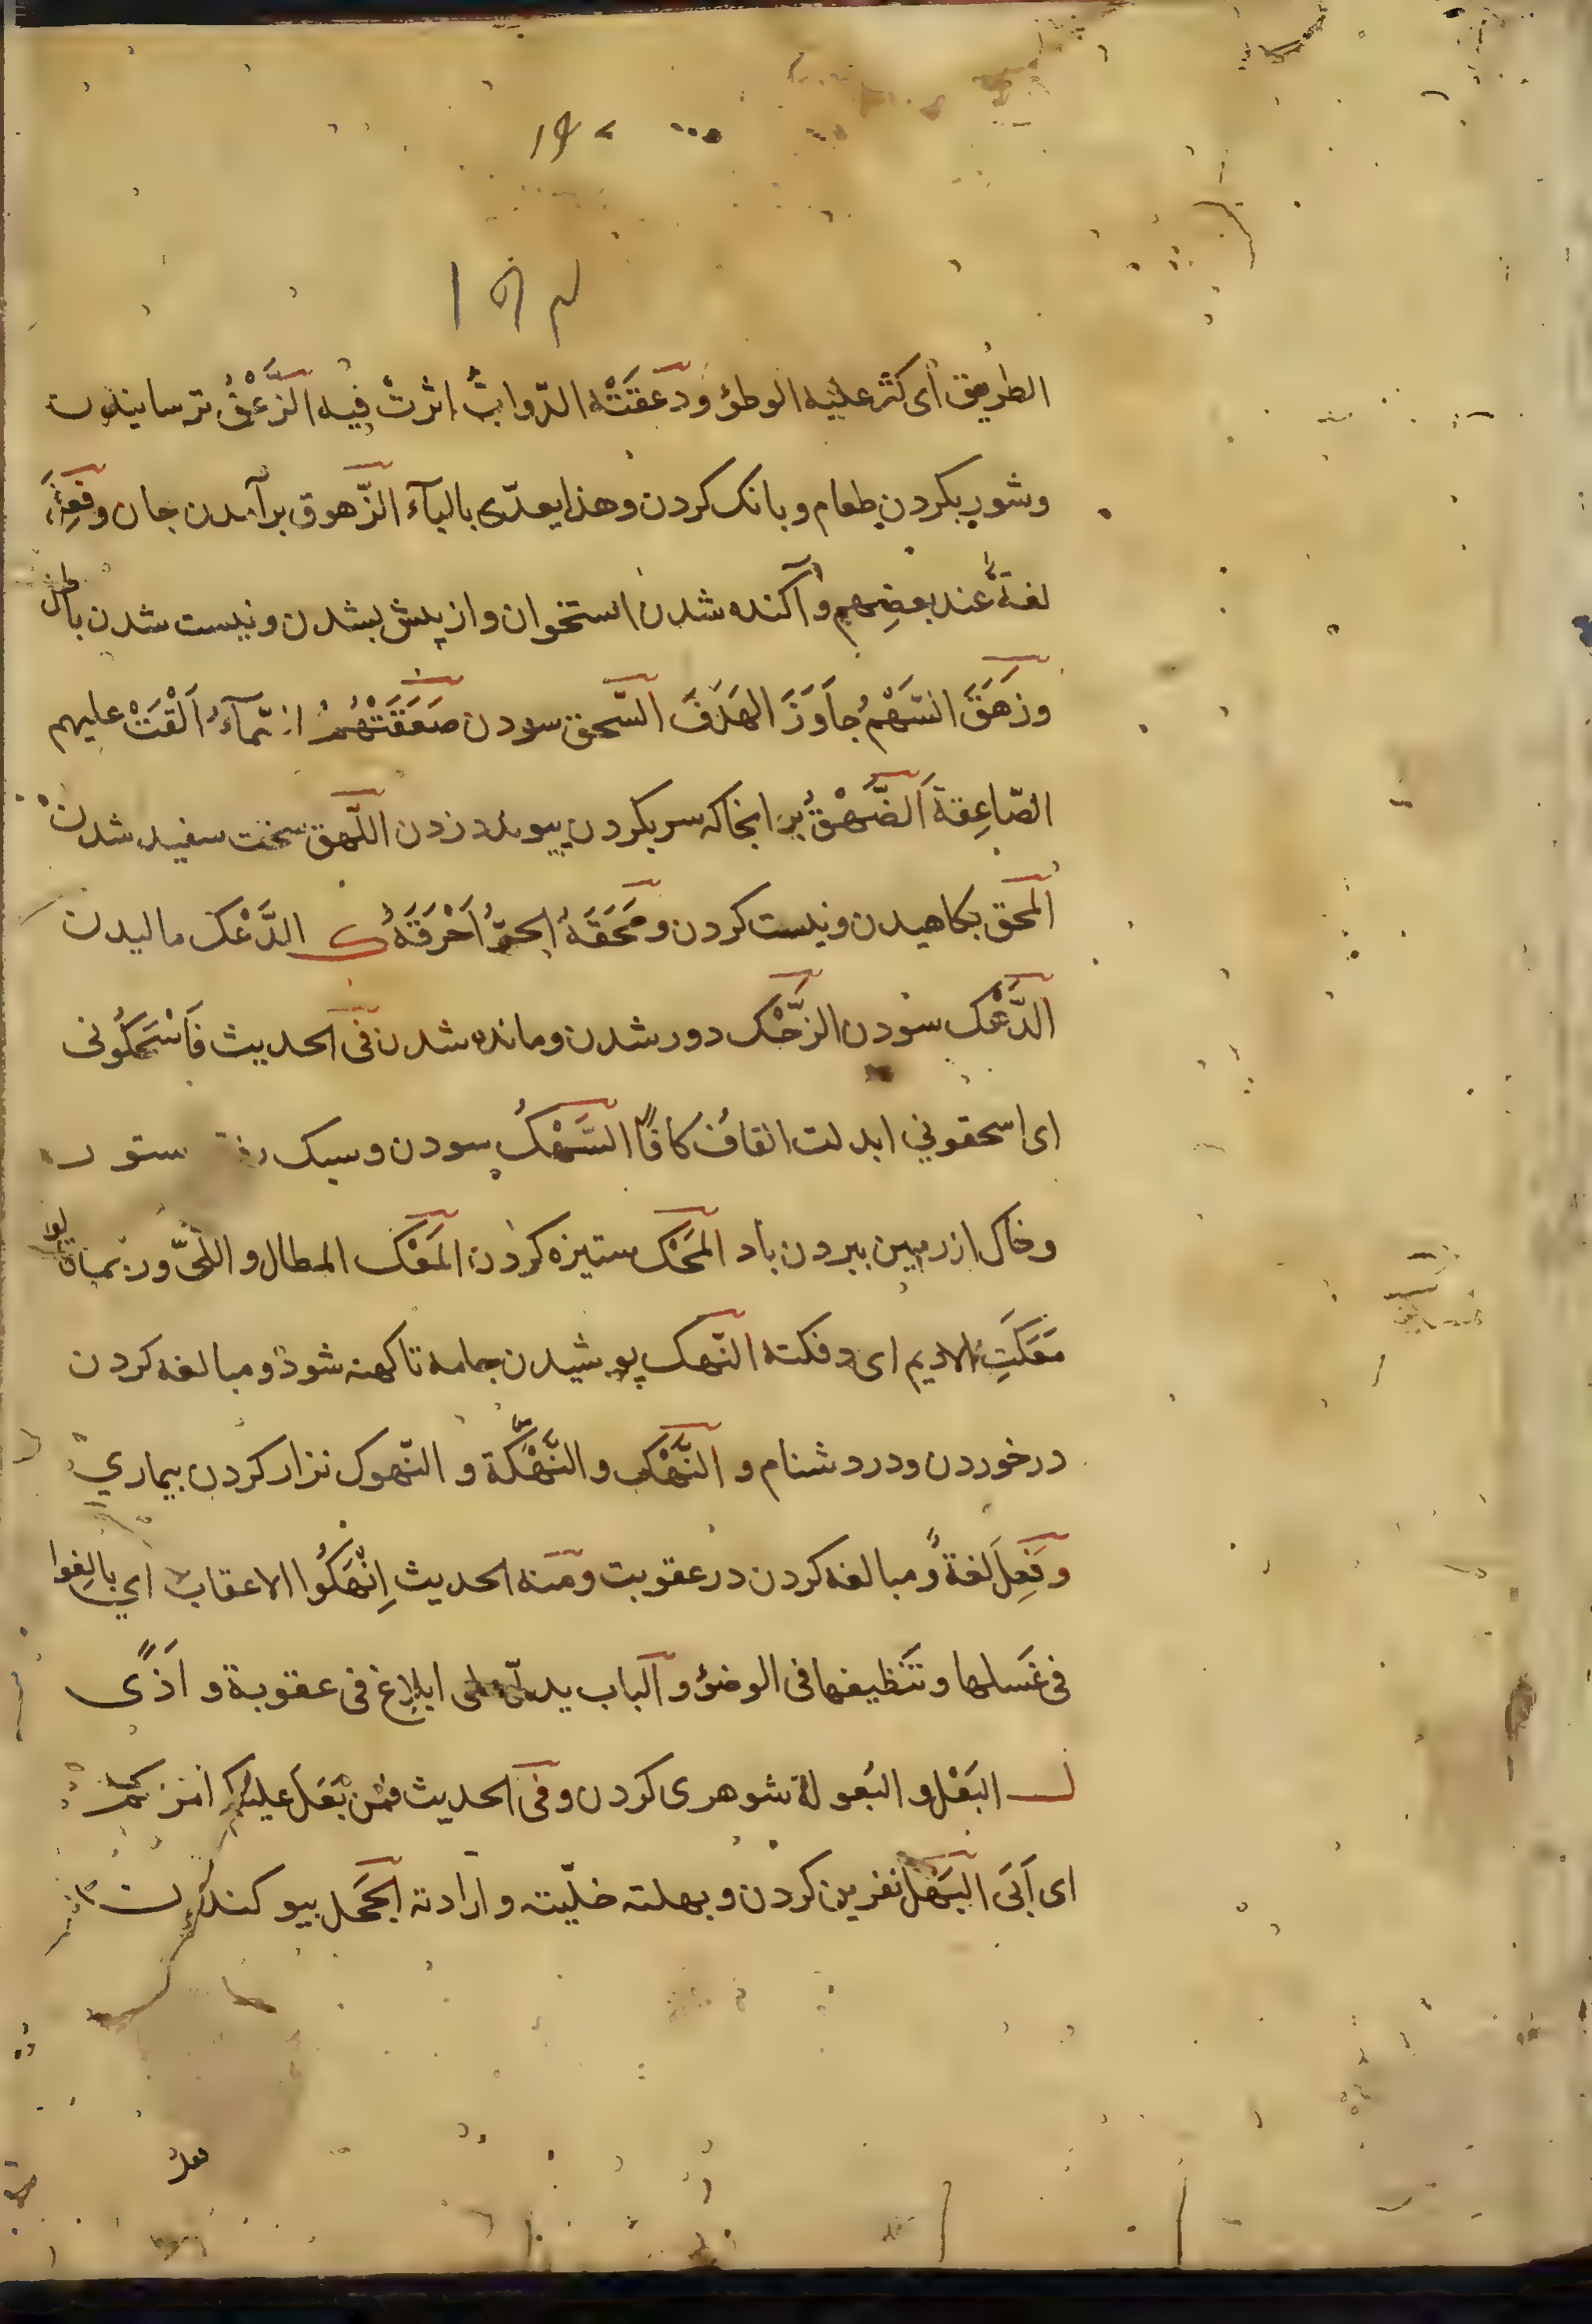 الطريق اى كثر عليه الوطؤ ودَعَقَتْه الدّوابّ اثرتْ فيه الزَّعْقُ ترسانيدن
وشور بكردن طعام وبانك كردن وهذا يعدّى بالبآء الزّهوق برآمدن جان وفَعِلَ
لغةٌ عند بعضِهم وآكنده شدن استخوان واز پيش بشدن ونيست شدن باطل
وزَهَقَ السَّهْمُ جاَوَزَ الهَدَفَ السّحق سودن صَعَقَتْهُمُ السّمآءُ اَلْقَتْ عليهم
الصّاعِقةَ الصَّهْقُ سر بكردن اللّهق سخت سفيد شدن
المَحق بكاهيدن ونيست كردن ومَحَقَهُ الحَرُّ اَحْرَقَهُ ك الدَّعْك ماليدن
الدَّعْك سودن الزَّحْك دور شدن ومانده شدن فى الحديث فَاسْحَكُونى
اى اسحقوني ابدلت القافُ كافًا السَّهْكُ سودن وسبك ستور
وخاك از زمين ببردن باد المَحْك ستيزه كردن المَعْك المطال واللىّ وربما قالوا
مَعَكتِ الاديم اى دلكته النّهك پوشيدن جامه تا كهنه شود ومبالغه كردن
در خوردن ودر دشنام و النَّهْك والنَّهْكَة و النّهوك نزار كردن بيماري
وفَعِلَ لغةٌ ومبالغه كردن در عقوبت ومنه الحديث اِنْهَكُوا الاعقابَ اي بالِغوا
فى غَسلها وتَنظيفها فى الوضؤ و الباب يدلّ على ابلاغ فى عقوبة و اَذًى
ل البَعْل و البُعولة شوهرى كردن وفى الحديث فمْن بَعَل عليكم امركم
اى اَبَى البَهْل نفرين كردن وبهلته خلّيته وارادته الجَحْل بيوكندن